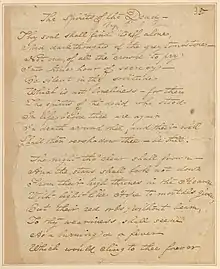 25
The Spirits of the Dead
Thy soul shall find itself alone
'Mid dark thoughts of the gray tomb-stone —
Not one, of all the crowd, to pry
Into thine hour of secrecy:
Be silent in that solitude
Which is not loneliness — for then
The spirits of the dead who stood
In life before thee are again
In death around thee, and their will
Shall then overshadow thee — be still.
The night, tho' clear, shall frown —
And the stars shall look not down
From their high thrones in the Heaven
With light like Hope to mortals given,
But their red orbs, without beam,
To thy weariness shall seem
As a burning and a fever
Which would cling to thee forever